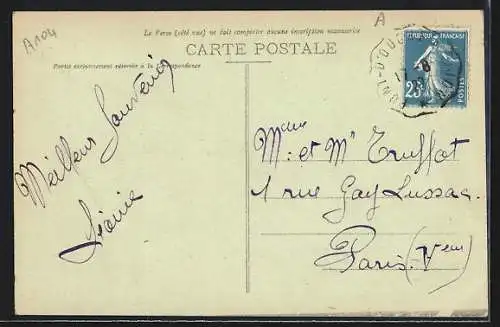 A104
A
Le Verso (côté vue) ne doit comporter aucune inscription manuscrite
CARTE POSTALE
Partie exclusivement réservée à la Correspondance
RÉPUBLIQUE FRANÇAISE
25c
POSTES
Meilleurs Souvenirs
Mme et Mr Truffot
1 rue Gay Lussac.
Paris (Vème)